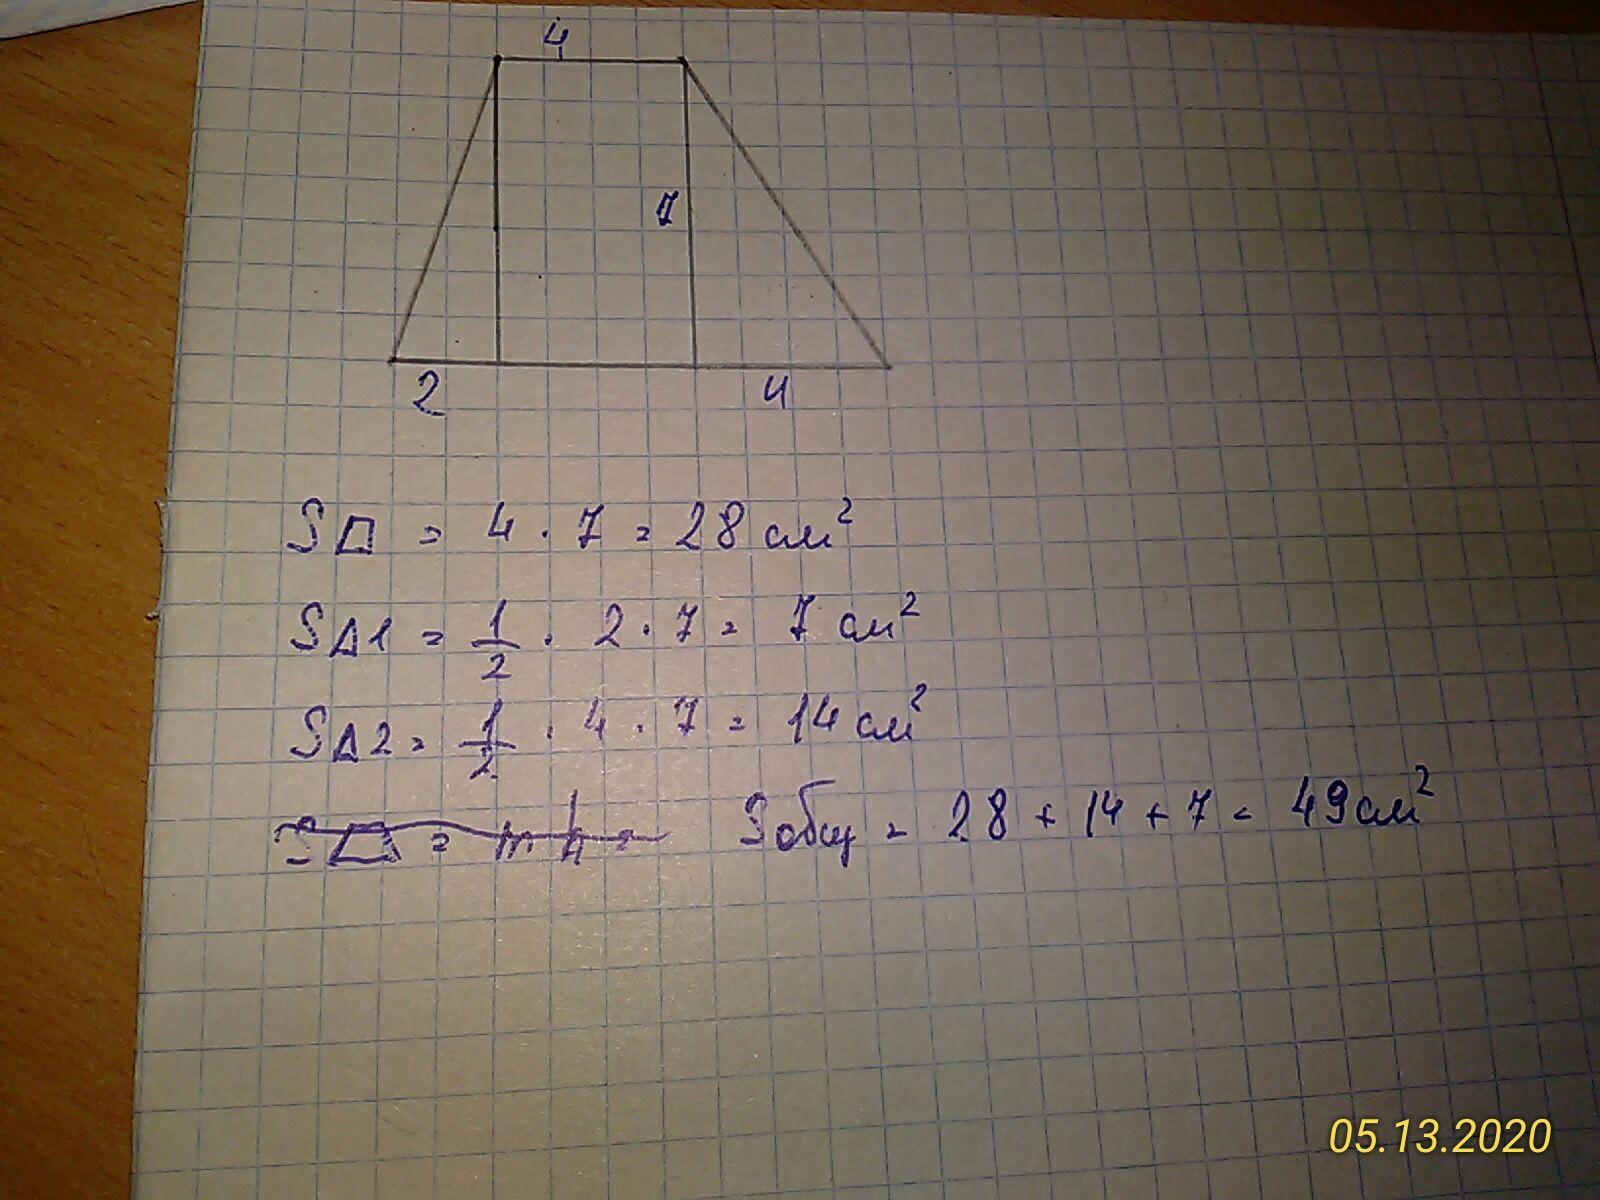 4
7
2 4
S▱ = 4 · 7 = 28 см²
S△1 = 1/2 · 2 · 7 = 7 см²
S△2 = 1/2 · 4 · 7 = 14 см²
S = m h = Sобщ = 28 + 14 + 7 = 49 см²
05.13.2020